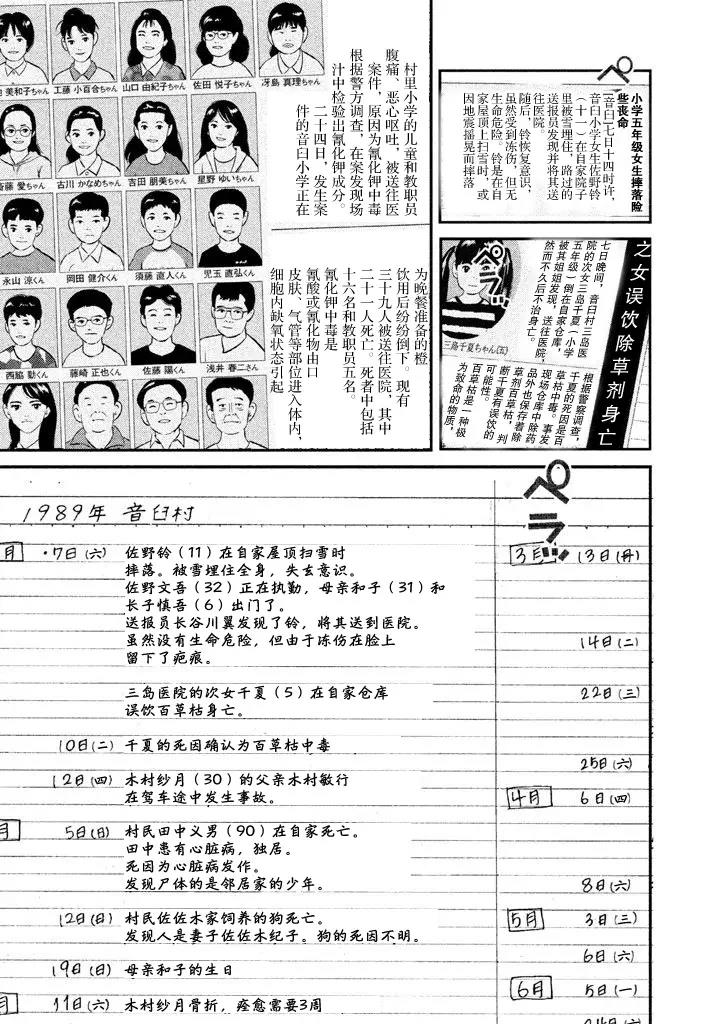 ペラ
小学五年级女生摔落险
些丧命
音臼七日十四时许，
音臼小学女生佐野铃
（十一）在自家院子
里被雪埋住，路过的
送报员发现并将其送
往医院。
随后，铃恢复意识，
虽然受到冻伤，但无
生命危险。铃是在自
家屋顶上扫雪时，或
因地震摇晃而摔落
之女误饮除草剂身亡
七日晚间，音臼村三岛医
院的次女三岛千夏（小学
五年级）倒在自家仓库，
被其姐姐发现，送往医院，
然而不久后不治身亡。
ペラ
三島千夏ちゃん(五)
根据警察调查，
千夏的死因是百
草枯中毒。事发
现场仓库中除药
品外也保存着除
草剂百草枯，判
断千夏有误饮的
可能性。
百草枯是一种极
为致命的物质，
村里小学的儿童和教职员
腹痛、恶心呕吐，被送往医
案件，原因为氰化钾中毒
根据警方调查，在案发现场
汁中检验出氰化钾成分。
二十四日，发生案
件的音臼小学正在
为晚餐准备的橙
饮用后纷纷倒下。现有
三十九人被送往医院，其中
二十一人死亡。死者中包括
十六名和教职员五名。
氰化钾中毒是
氰酸或氰化物由口
皮肤、气管等部位进入体内，
细胞内缺氧状态引起
美和子ちゃん
工藤 小百合ちゃん
山口 由紀子ちゃん
佐田 悦子ちゃん
冴島 真理ちゃん
斎藤 愛ちゃん
古川 かなめちゃん
吉田 朋美ちゃん
星野 ゆいちゃん
永山 涼くん
岡田 健介くん
須藤 直人くん
児玉 直弘くん
西脇 勤くん
藤崎 正也くん
佐藤 陽くん
浅井 春二さん
ペラッ
1989年 音臼村
月
・7日(六) 佐野铃（11）在自家屋顶扫雪时
摔落。被雪埋住全身，失去意识。
佐野文吾（32）正在执勤，母亲和子（31）和
长子慎吾（6）出门了。
送报员长谷川翼发现了铃，将其送到医院。
虽然没有生命危险，但由于冻伤在脸上
留下了疤痕。
三岛医院的次女千夏（5）在自家仓库
误饮百草枯身亡。
10日(二) 千夏的死因确认为百草枯中毒
12日(四) 木村纱月（30）的父亲木村敏行
在驾车途中发生事故。
月
5日(日) 村民田中义男（90）在自家死亡。
田中患有心脏病，独居。
死因为心脏病发作。
发现尸体的是邻居家的少年。
12日(日) 村民佐佐木家饲养的狗死亡。
发现人是妻子佐佐木纪子。狗的死因不明。
19日(日) 母亲和子的生日
月
11日(六) 木村纱月骨折，痊愈需要3周
3月
13日(月)
14日(二)
22日(三)
25日(六)
4月
6日(四)
8日(六)
5月
3日(三)
6日(六)
6月
5日(一)
24日(六)